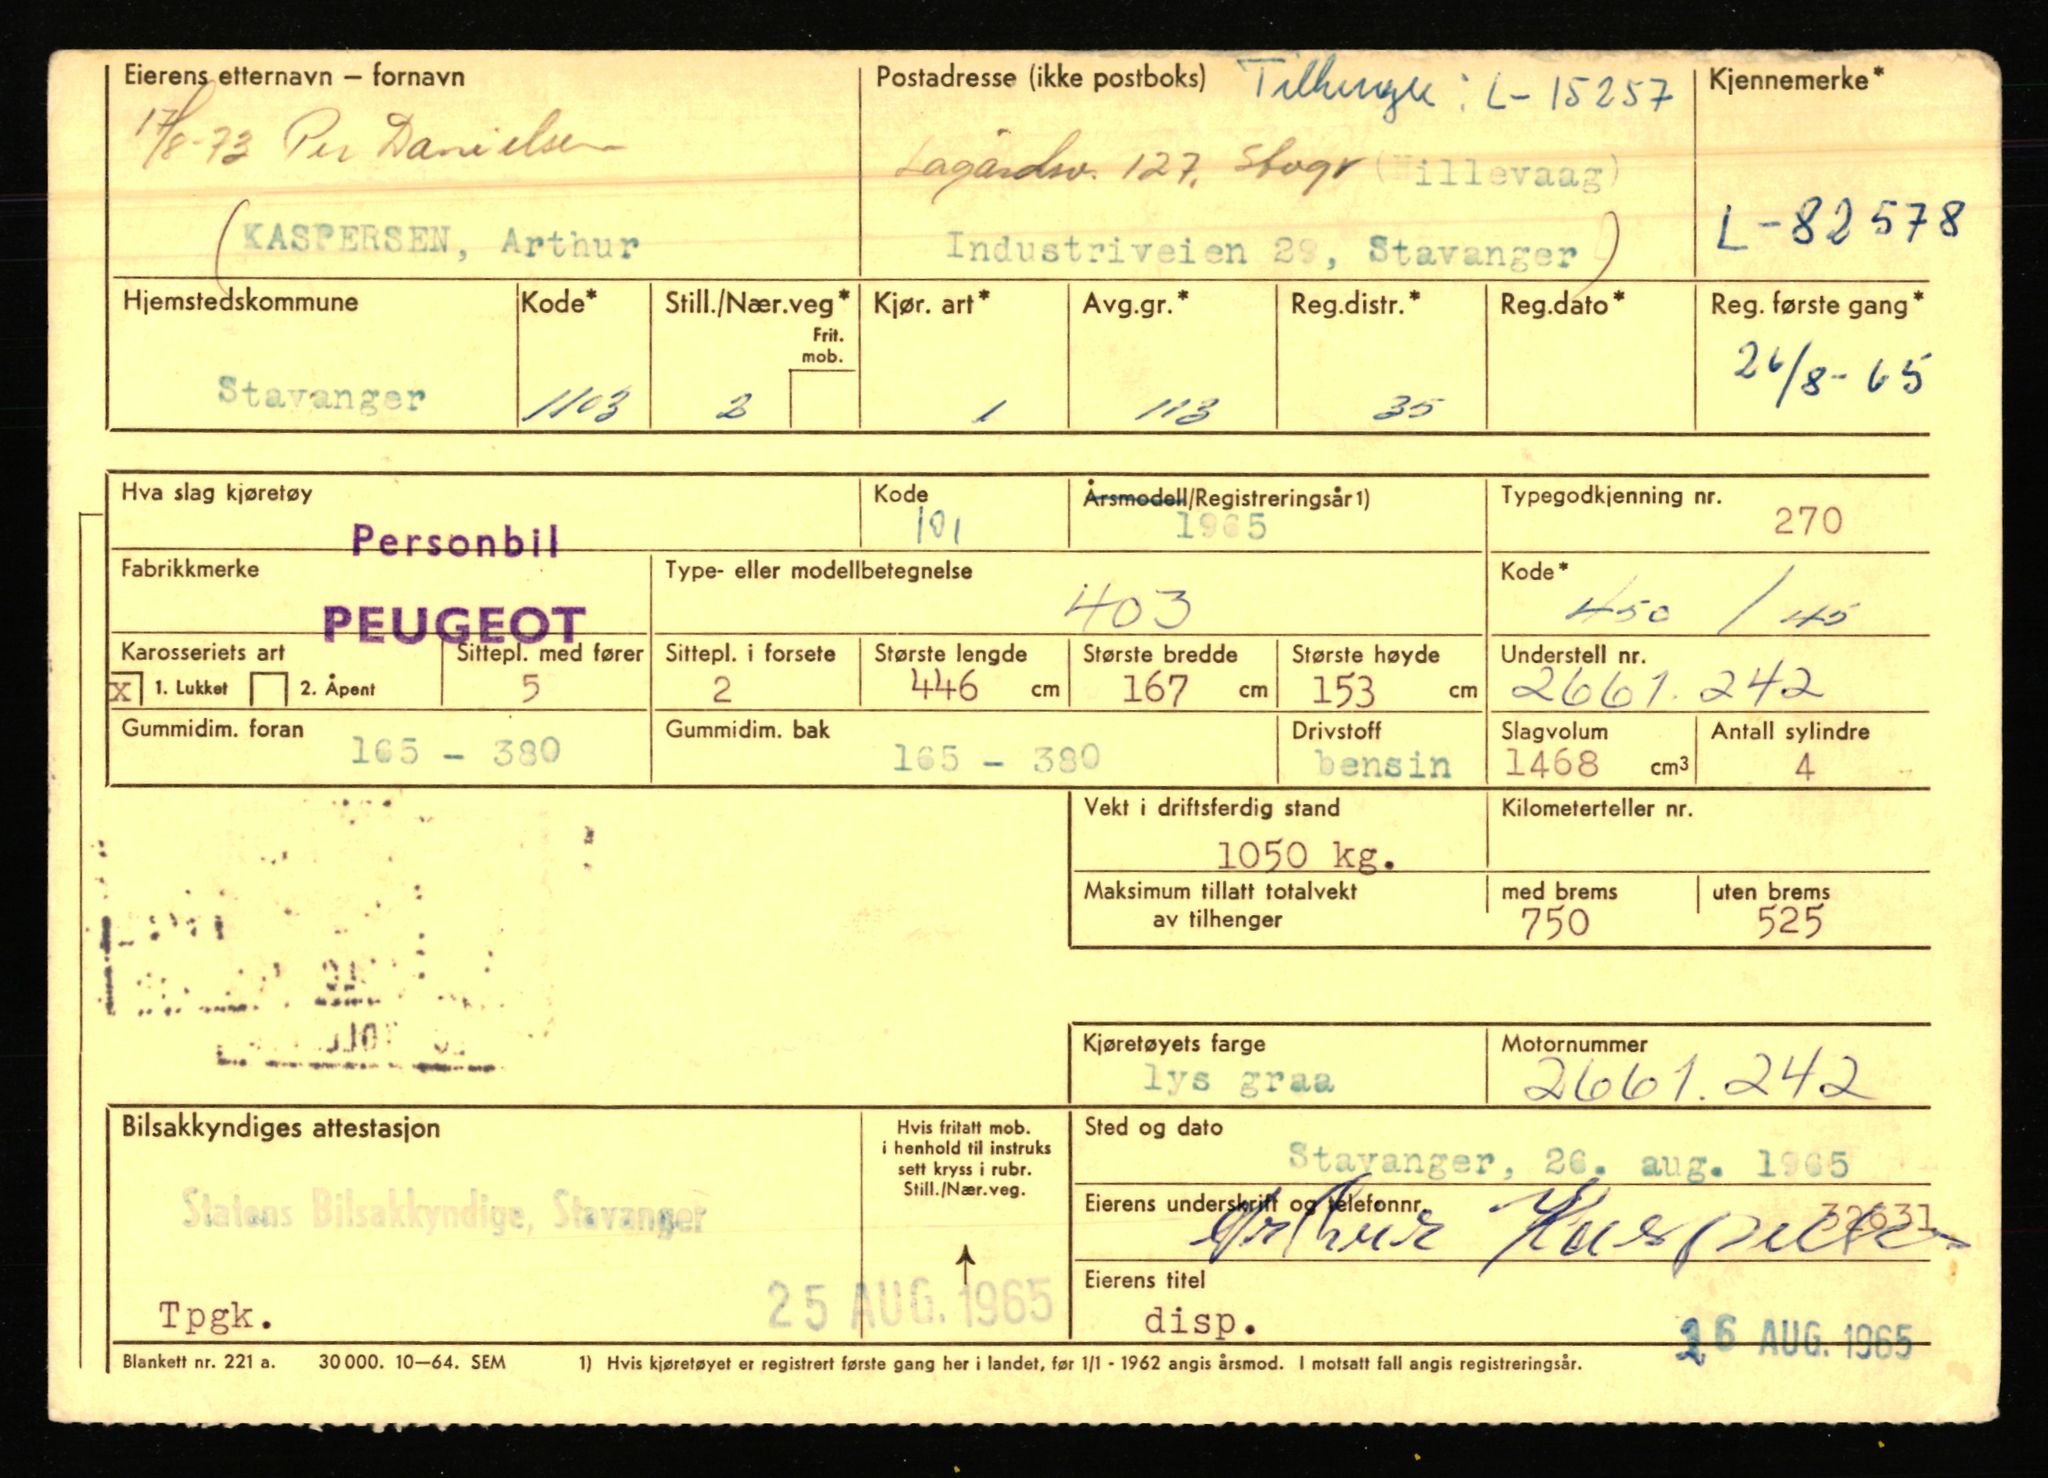 Eierens etternavn – fornavn
Postadresse (ikke postboks) Tilhenger: L-15257
Kjennemerke*
17/8-73 Per Danielsen
Lagårdsv. 127, Stvgr (Hillevaag)
(KASPERSEN, Arthur
Industriveien 29, Stavanger)
L-82578
Hjemstedskommune
Kode*
Still./Nær.veg*
Frit.
mob.
Kjør. art*
Avg.gr.*
Reg.distr.*
Reg.dato*
Reg. første gang*
Stavanger
1103
2
1
113
35
26/8-65
Hva slag kjøretøy
Personbil
Kode
101
Årsmodell/Registreringsår1)
1965
Typegodkjenning nr.
270
Fabrikkmerke
PEUGEOT
Type- eller modellbetegnelse
403
Kode*
450 / 45
Karosseriets art
X 1. Lukket 2. Åpent
Sittepl. med fører
5
Sittepl. i forsete
2
Største lengde
446 cm
Største bredde
167 cm
Største høyde
153 cm
Understell nr.
2661.242
Gummidim. foran
165 – 380
Gummidim. bak
165 – 380
Drivstoff
bensin
Slagvolum
1468 cm3
Antall sylindre
4
Vekt i driftsferdig stand
1050 kg.
Kilometerteller nr.
Maksimum tillatt totalvekt
av tilhenger
med brems
750
uten brems
525
Kjøretøyets farge
lys graa
Motornummer
2661.242
Bilsakkyndiges attestasjon
Statens Bilsakkyndige, Stavanger
Tpgk.
25 AUG. 1965
Hvis fritatt mob.
i henhold til instruks
sett kryss i rubr.
Still./Nær.veg.
Sted og dato
Stavanger, 26. aug. 1965
Eierens underskrift og telefonnr.
32631
Arthur Kaspersen
Eierens titel
disp.
26 AUG. 1965
Blankett nr. 221 a. 30 000. 10–64. SEM
1) Hvis kjøretøyet er registrert første gang her i landet, før 1/1 - 1962 angis årsmod. I motsatt fall angis registreringsår.